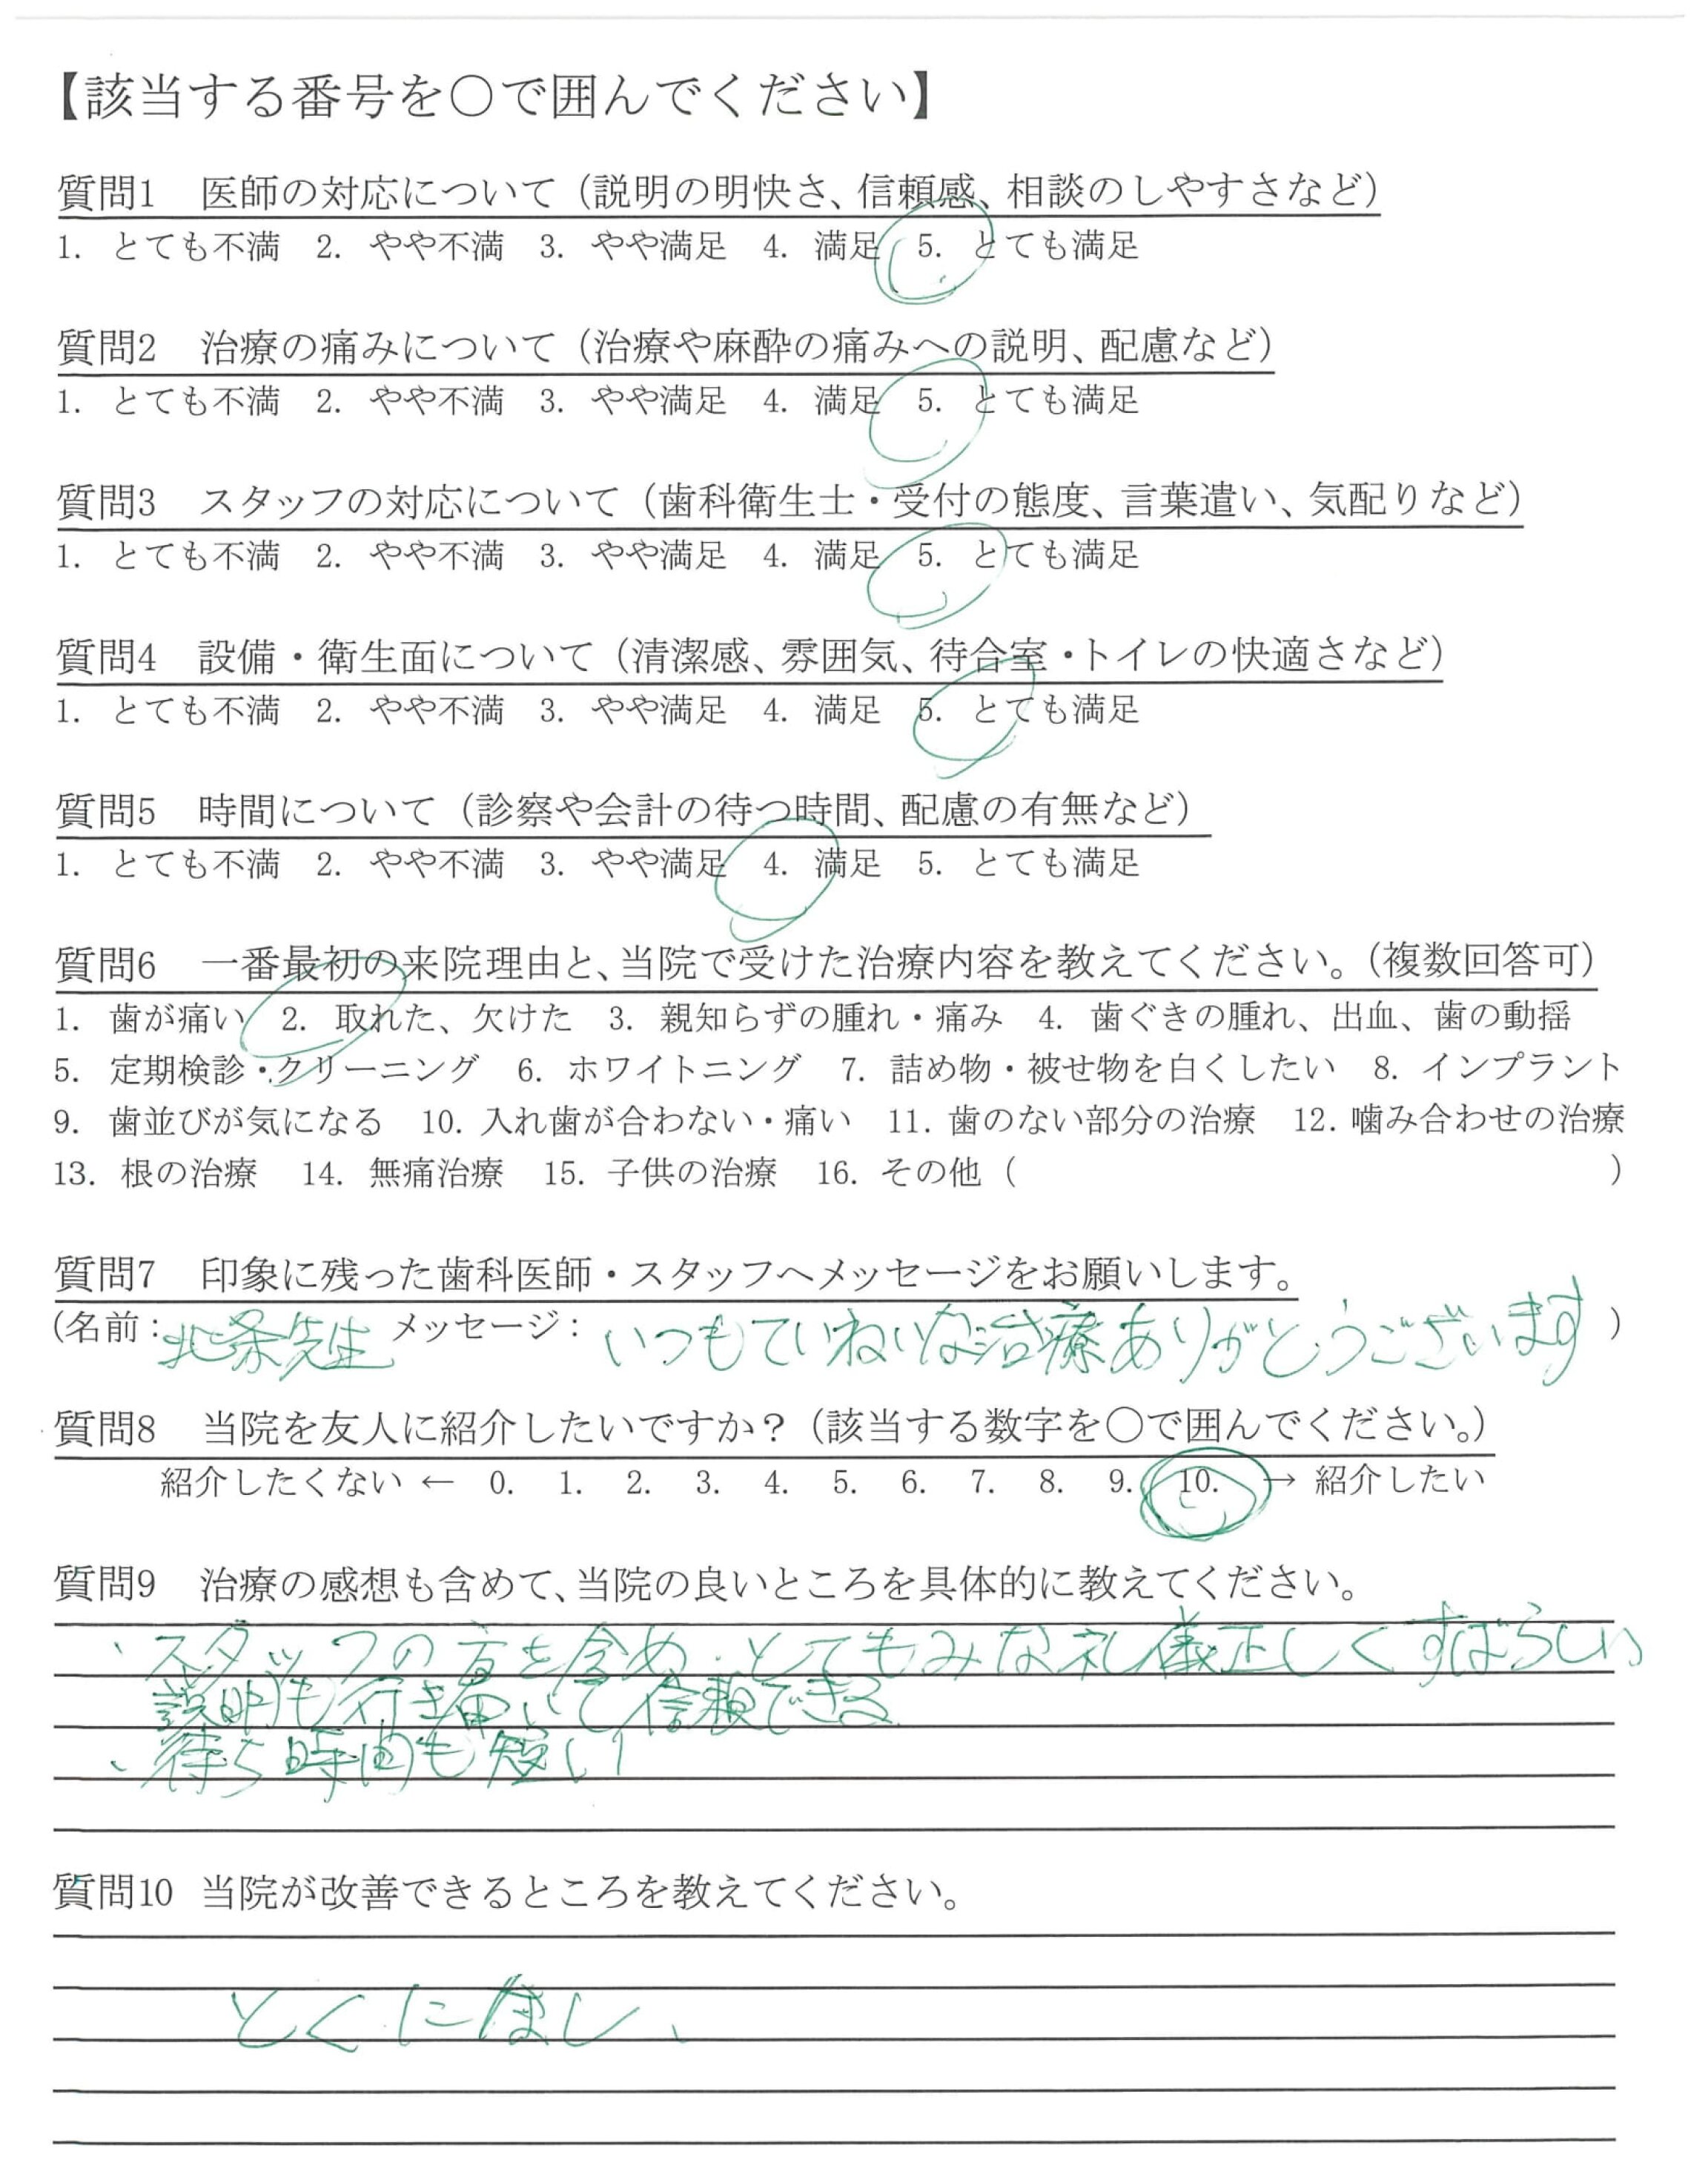 【該当する番号を○で囲んでください】
質問1 医師の対応について（説明の明快さ、信頼感、相談のしやすさなど）
1. とても不満 2. やや不満 3. やや満足 4. 満足 5. とても満足
質問2 治療の痛みについて（治療や麻酔の痛みへの説明、配慮など）
1. とても不満 2. やや不満 3. やや満足 4. 満足 5. とても満足
質問3 スタッフの対応について（歯科衛生士・受付の態度、言葉遣い、気配りなど）
1. とても不満 2. やや不満 3. やや満足 4. 満足 5. とても満足
質問4 設備・衛生面について（清潔感、雰囲気、待合室・トイレの快適さなど）
1. とても不満 2. やや不満 3. やや満足 4. 満足 5. とても満足
質問5 時間について（診察や会計の待つ時間、配慮の有無など）
1. とても不満 2. やや不満 3. やや満足 4. 満足 5. とても満足
質問6 一番最初の来院理由と、当院で受けた治療内容を教えてください。（複数回答可）
1. 歯が痛い 2. 取れた、欠けた 3. 親知らずの腫れ・痛み 4. 歯ぐきの腫れ、出血、歯の動揺
5. 定期検診・クリーニング 6. ホワイトニング 7. 詰め物・被せ物を白くしたい 8. インプラント
9. 歯並びが気になる 10. 入れ歯が合わない・痛い 11. 歯のない部分の治療 12. 噛み合わせの治療
13. 根の治療 14. 無痛治療 15. 子供の治療 16. その他（ ）
質問7 印象に残った歯科医師・スタッフへメッセージをお願いします。
(名前：北条先生 メッセージ：いつもていねいな治療ありがとうございます ）
質問8 当院を友人に紹介したいですか？（該当する数字を○で囲んでください。）
紹介したくない ← 0. 1. 2. 3. 4. 5. 6. 7. 8. 9. 10. → 紹介したい
質問9 治療の感想も含めて、当院の良いところを具体的に教えてください。
、スタッフの方も含め、とてもみな礼儀正しくすばらしい
説明も行き届いて信頼できる
、待ち時間も短い
質問10 当院が改善できるところを教えてください。
とくになし、